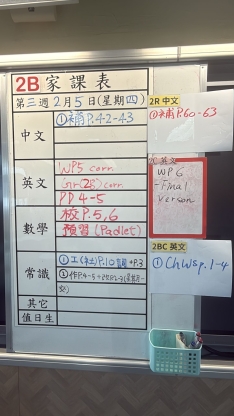 2B 家課表
第三週 2月5日(星期四)
中文
①補P.42-43
英文
WP5 corr.
Gr(2B) corr.
PP 4-5
數學
校P.5,6
預習(Padlet)
常識
①工(社)P.10 + P.3
②作P.4-5
其它
值日生
2R 中文
①補P.60-63
2C 英文
WP 6
-Final
version
2BC 英文
① Ch WS p.1-4